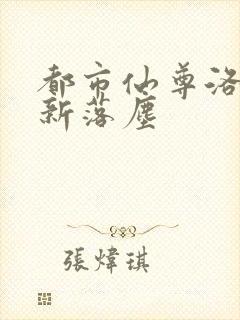 都市仙尊洛
新落塵
張煒琪